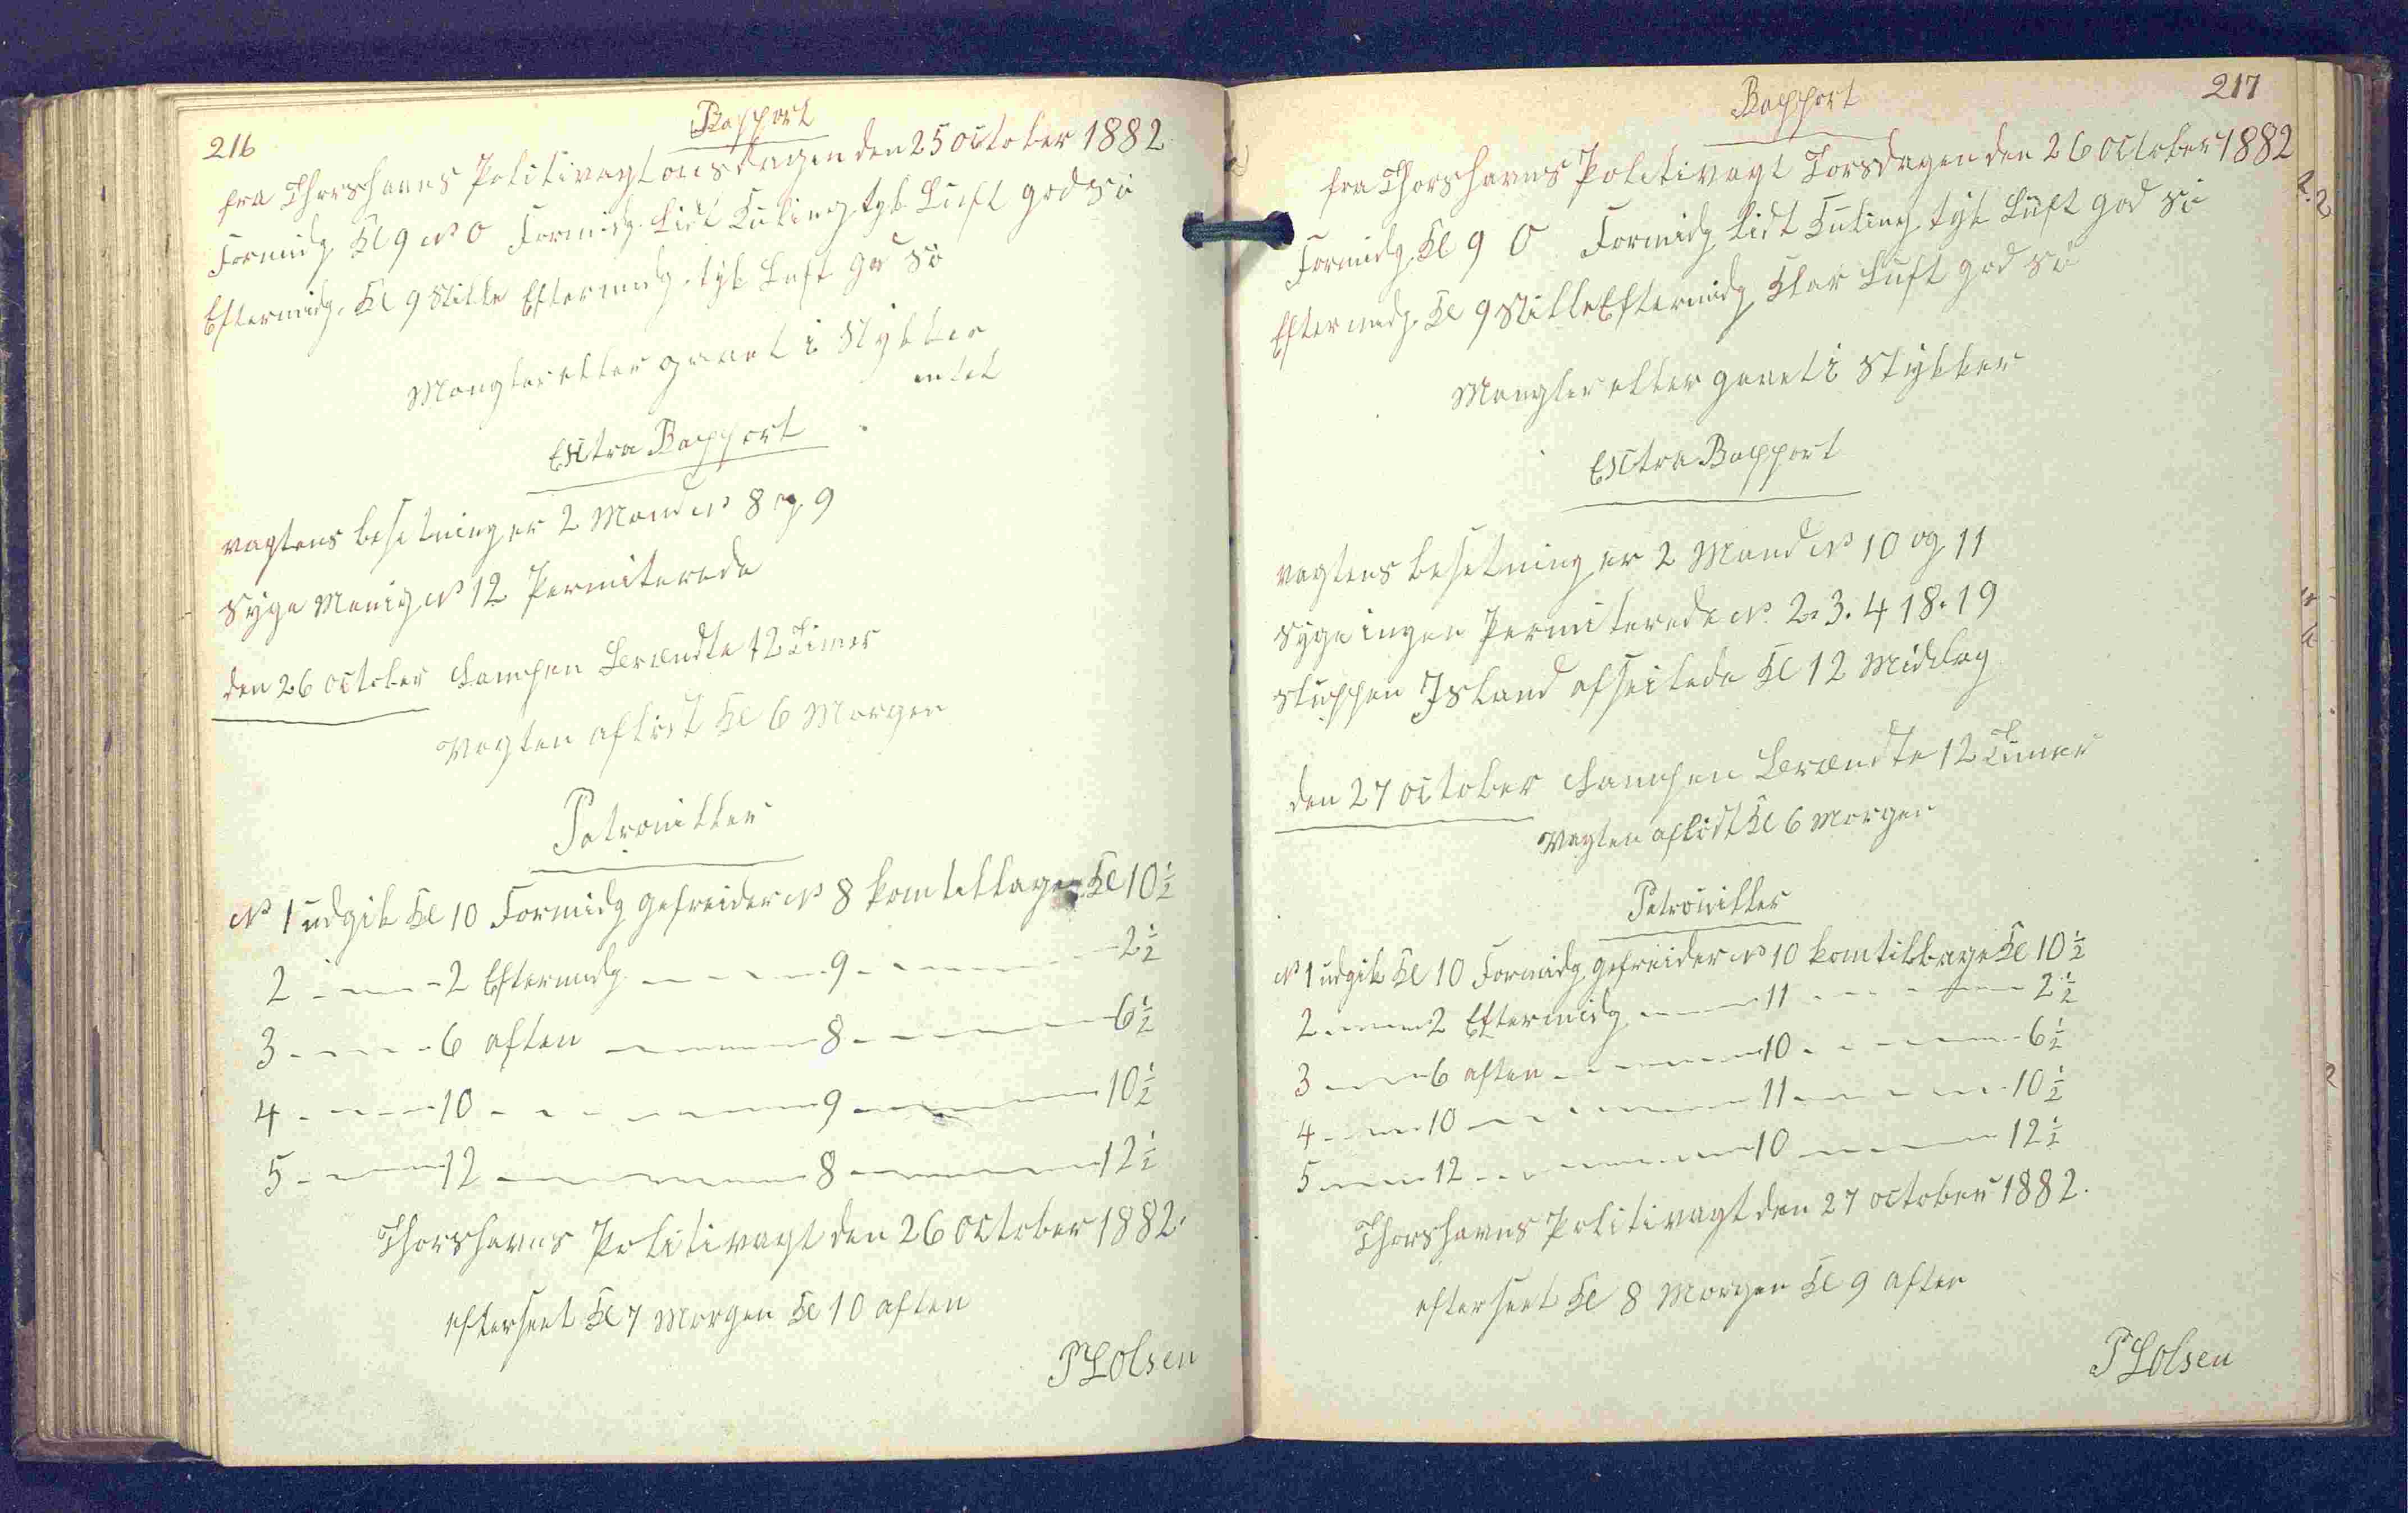 216
Rapport
fra Thorshavns Politivagt onsdagen den 25 October 1882
Formidg Kl 9 N O Formidg. lidt Kuling tyk Luft god Sö
Eftermidg. Kl 9 Stille Eftermidg. tyk Luft god Sö
Mangler eller gaaet i Stykker
intet
Extra Rapport
vagtens besetning er 2 Mand N° 8 og 9
Syge Menig N° 12 Permiterede
den 26 October Lampen Brændte 12 Timer
Vagten aflöst Kl 6 Morgen
Patrouiller
N° 1 udgik Kl 10 Formidg gefreider N° 8 kom tilbage Kl 10 1/2
2 - - - 2 Eftermidg. - - - 9 - - - 2 1/2
3 - - - 6 aften - - - 8 - - - 6 1/2
4 - - - 10 - - - 9 - - - 10 1/2
5 - - - 12 - - - 8 - - - 12 1/2
Thorshavns Politivagt den 26 October 1882.
efterseet Kl 7 Morgen Kl 10 aften
P L Olsen
217
Rapport
fra Thorshavns Politivagt Torsdagen den 26 October 1882
Formidg. Kl 9 O Formidg lidt Kuling tyk Luft god Sö
Eftermidg. Kl 9 Stille Eftermidg Klar Luft god Sö
Mangler eller gaaet i Stykker
Extra Rapport
vagtens besetning er 2 Mand N° 10 og 11
Syge ingen Permiterede N° 2. 3. 4 18. 19
Sluppen Island afseilede Kl 12 Middag
den 27 October Lampen Brændte 12 Timer
Vagten aflöst Kl 6 Morgen
Patrouiller
N° 1 udgik Kl 10 Formidg gefreider N° 10 kom tilbage Kl 10 1/2
2 - - - 2 Eftermidg - - - 11 - - - 2 1/2
3 - - - 6 aften - - - 10 - - - 6 1/2
4 - - - 10 - - - 11 - - - 10 1/2
5 - - - 12 - - - 10 - - - 12 1/2
Thorshavns Politivagt den 27 October 1882.
efterseet Kl 8 Morgen Kl 9 aften
P L Olsen